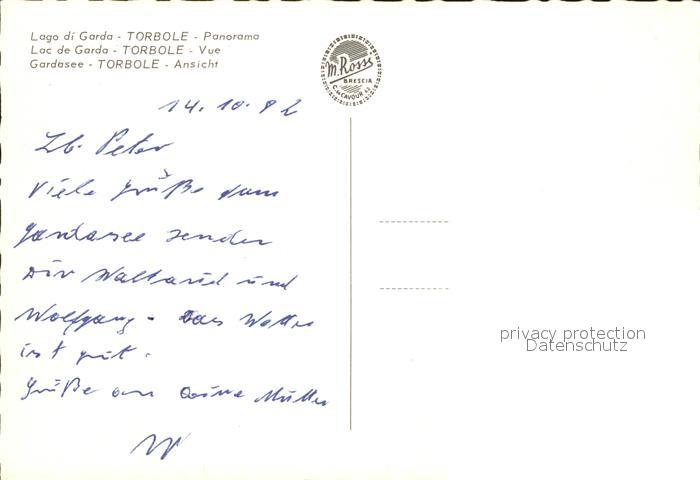 Lago di Garda - TORBOLE - Panorama
Lac de Garda - TORBOLE - Vue
Gardasee - TORBOLE - Ansicht
M. Rossi
BRESCIA
C. so CAVOUR 42
14. 10. 82
Lb. Peter
Viele Grüße vom
Gardasee senden
Dir Waltraud und
Wolfgang - Das Wetter
ist gut.
Grüße an Deine Mutter
W
privacy protection
Datenschutz